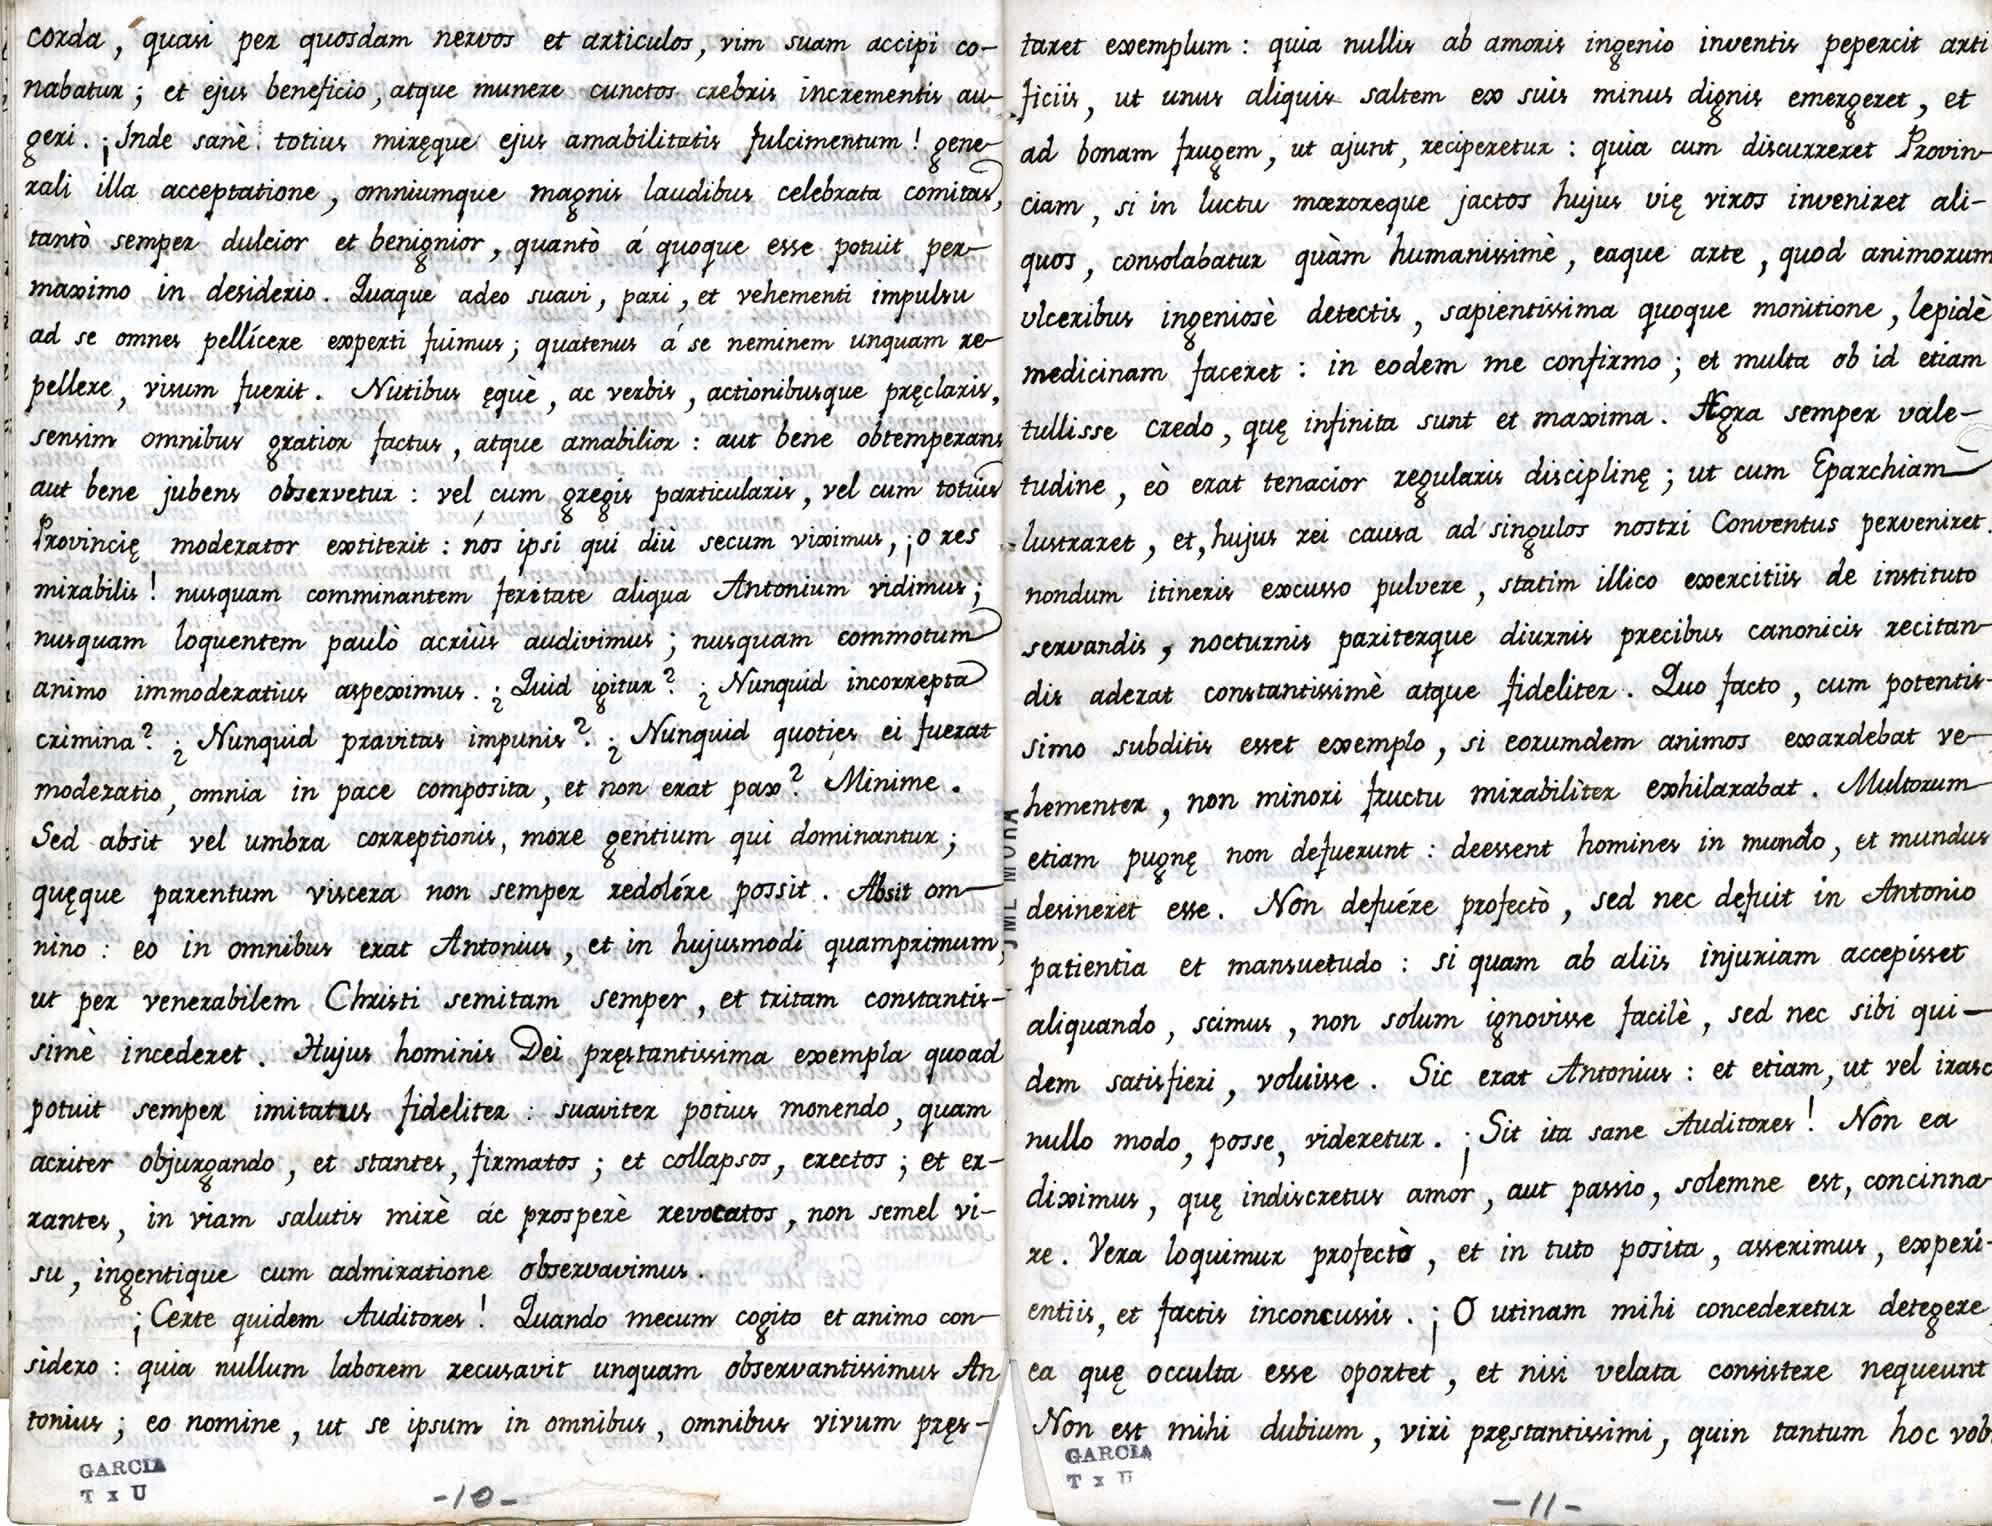 corda, quasi per quosdam nervos et articulos, vim suam accipi co-
nabatur; et ejus beneficio, atque munere cunctos crebris incrementis au-
geri. ¡Inde sanè totius miręque ejus amabilitatis fulcimentum! gene-
rali illa acceptatione, omniumque magnis laudibus celebrata comitas,
tantò semper dulcior et benignior, quantò á quoque esse potuit per-
maximo in desiderio. Quaque adeo suavi, pari, et vehementi impulsu
ad se omnes pellícere experti fuimus; quatenus á se neminem unquam re-
pellere, visum fuerit. Nutibus ęquè, ac verbis, actionibusque pręclaris,
sensim omnibus gratior factus, atque amabilior: aut bene obtemperans
aut bene jubens observetur: vel cum gregis particularis, vel cum totius
Provincię moderator extiterit: nós ipsi qui diu secum viximus, ¡o res
mirabilis! nusquam comminantem feritate aliqua Antonium vidimus;
nusquam loquentem paulò acriùs audivimus; nusquam commotum
animo immoderatius aspeximus. ¿Quid igitur? ¿Nunquid incorrepta
crimina? ¿Nunquid pravitas impunis? ¿Nunquid quoties ei fuerat
moderatio, omnia in pace composita, et non erat pax? Minime.
Sed absit vel umbra correptionis, more gentium qui dominantur;
quęque parentum viscera non semper redolére possit. Absit om-
nino: eo in omnibus erat Antonius, et in hujusmodi quamprimum,
ut per venerabilem Christi semitam semper, et tritam constantis-
simè incederet. Hujus hominis Dei pręstantissima exempla quoad
potuit semper imitatus fideliter: suaviter potius monendo, quam
acriter objurgando, et stantes, firmatos; et collapsos, erectos; et er-
rantes, in viam salutis mirè ác prosperè revocatos, non semel vi-
su, ingentique cum admiratione observavimus.
¡Certe quidem Auditores! Quando mecum cogito et animo con-
sidero: quia nullum laborem recusavit unquam observantissimus An
tonius; eo nomine, ut se ipsum in omnibus, omnibus vivum pręs-
GARCIA
T x U
-10-
taret exemplum: quia nullis ab amoris ingenio inventis pepercit arti
ficiis, ut unus aliquis saltem ex suis minus dignis emergeret, et
ad bonam frugem, ut ajunt, reciperetur: quia cum discurreret Provin-
ciam, si in luctu mœroreque jactos hujus vię viros inveniret ali-
quos, consolabatur quàm humanissimè, eaque arte, quod animorum
ulceribus ingeniosè detectis, sapientissima quoque monitione, lepidè
medicinam faceret: in eodem me confirmo; et multa ob id etiam
tullisse credo, quę infinita sunt et maxima. Ægra semper vale-
tudine, eò erat tenacior regularis disciplinę; ut cum Eparchiam
lustraret, et, hujus rei causa ad singulos nostri Conventus perveniret.
nondum itineris excusso pulvere, statim illico exercitiis de instituto
servandis, nocturnis pariterque diurnis precibus canonicis recitan-
dis aderat constantissimè atque fideliter. Quo facto, cum potentis-
simo subditis esset exemplo, si eorumdem animos exardebat ve-
hementer, non minori fructu mirabilìter exhilarabat. Multorum
etiam pugnę non defuerunt: deessent homines in mundo, et mundus
desineret esse. Non defuére profectò, sed nec defuit in Antonio
patientia et mansuetudo: si quam ab aliis injuriam accepisset
aliquando, scimus, non solum ignovisse facilè, sed nec sibi qui-
dem satisfieri, voluisse. Sic erat Antonius: et etiam, ut vel irasc
nullo modo, posse, videretur. ¡Sit ita sane Auditores! Nòn ea
diximus, quę indiscretus amor, aut passio, solemne est, concinna-
re. Vera loquimur profectò, et in tuto posita, asserimus, experi-
entiis, et factis inconcussis. ¡O utinam mihi concederetur detegere
ea quę occulta esse oportet, et nisi velata consistere nequeunt
Non est mihi dubium, viri pręstantissimi, quin tantum hoc vob
GARCIA
T x U
-11-